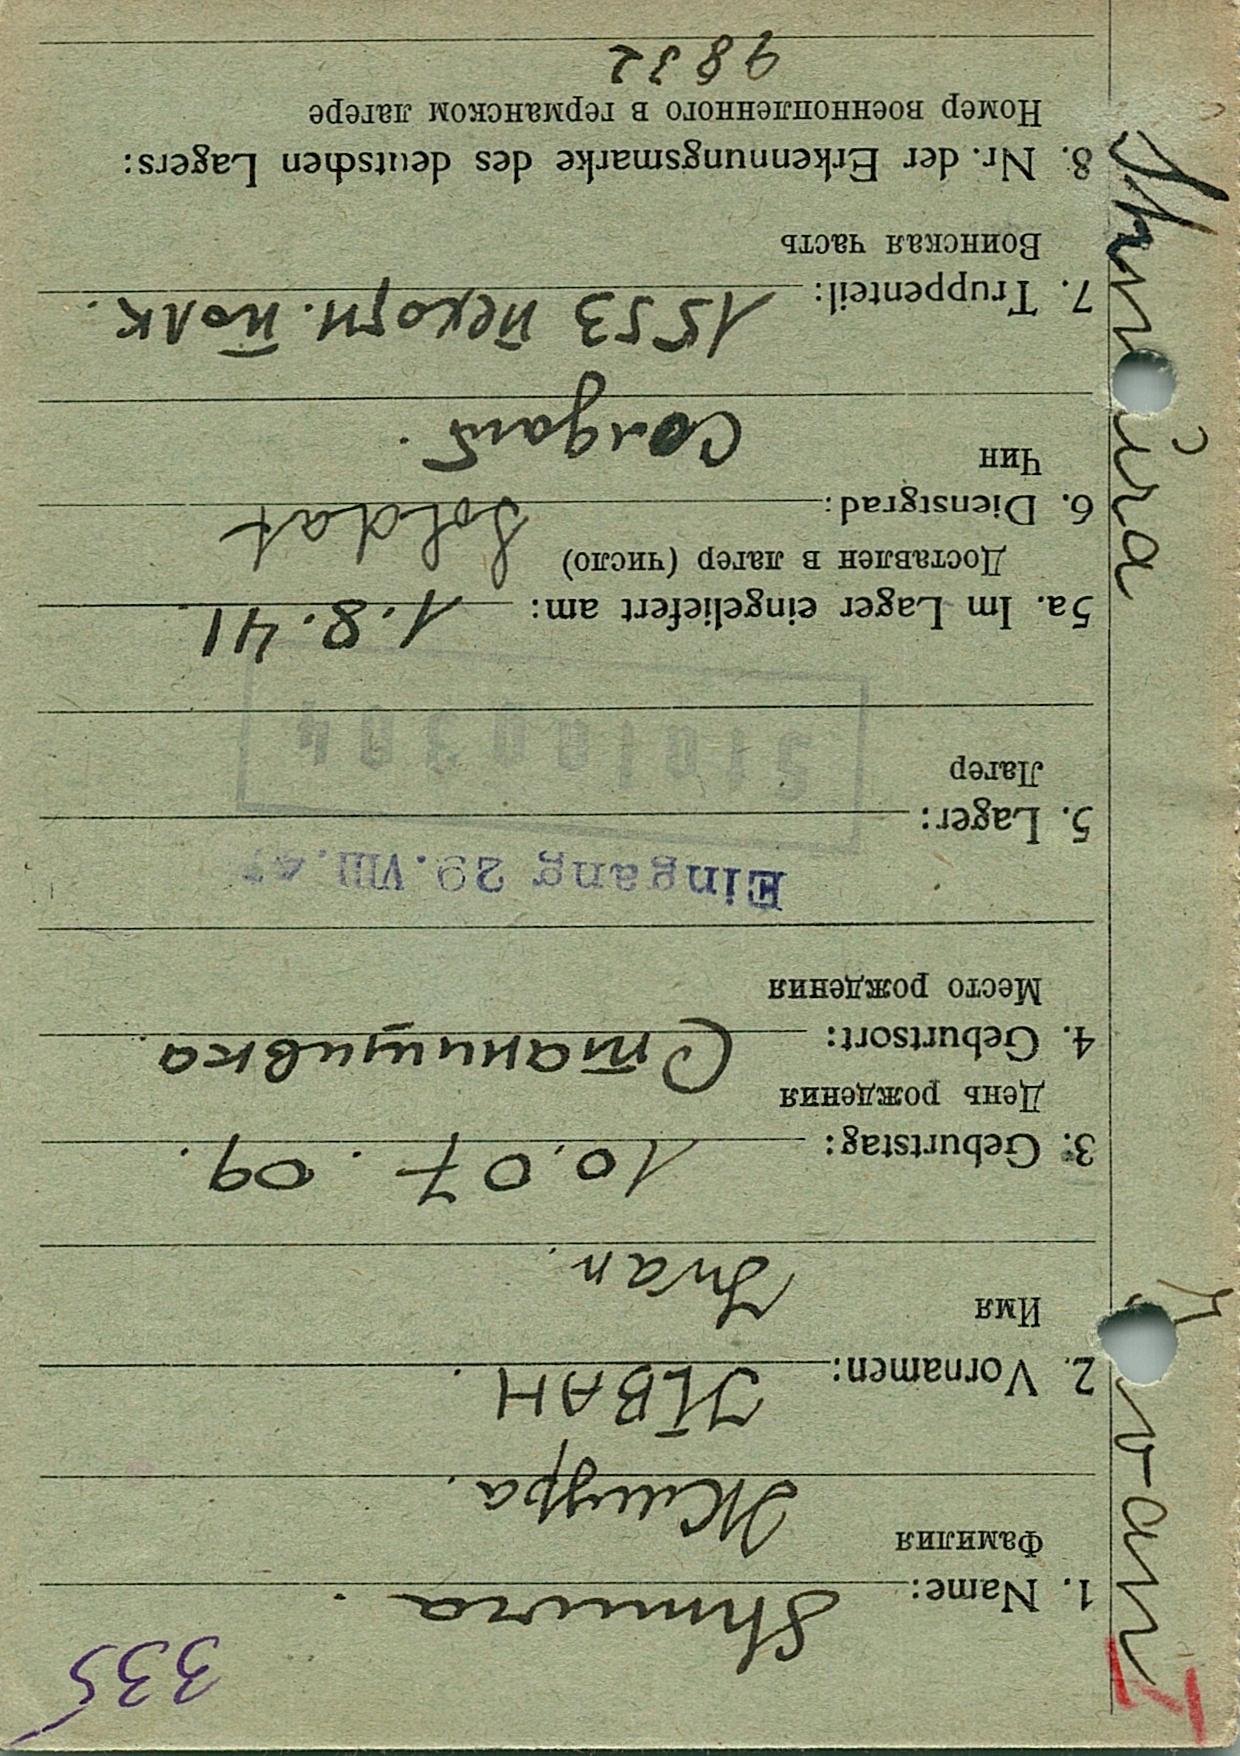 335
1. Name: Shmura.
Фамилия
Жмура.
2. Vornamen: ИВАН.
Имя
Ivan.
3. Geburtstag: 10.07.09.
День рождения
4. Geburtsort: Станишивка.
Место рождения
Eingang 29. VIII. 4
5. Lager:
Лагер
Stalag 304
5a. Im Lager eingeliefert am: 1.8.41.
Доставлен в лагер (число)
Soldat
6. Dienstgrad:
Чин
Солдат.
7. Truppenteil: 1553 пехотн. полк.
Воинская часть
8. Nr. der Erkennungsmarke des deutschen Lagers:
Номер военнопленного в германском лагере
9832